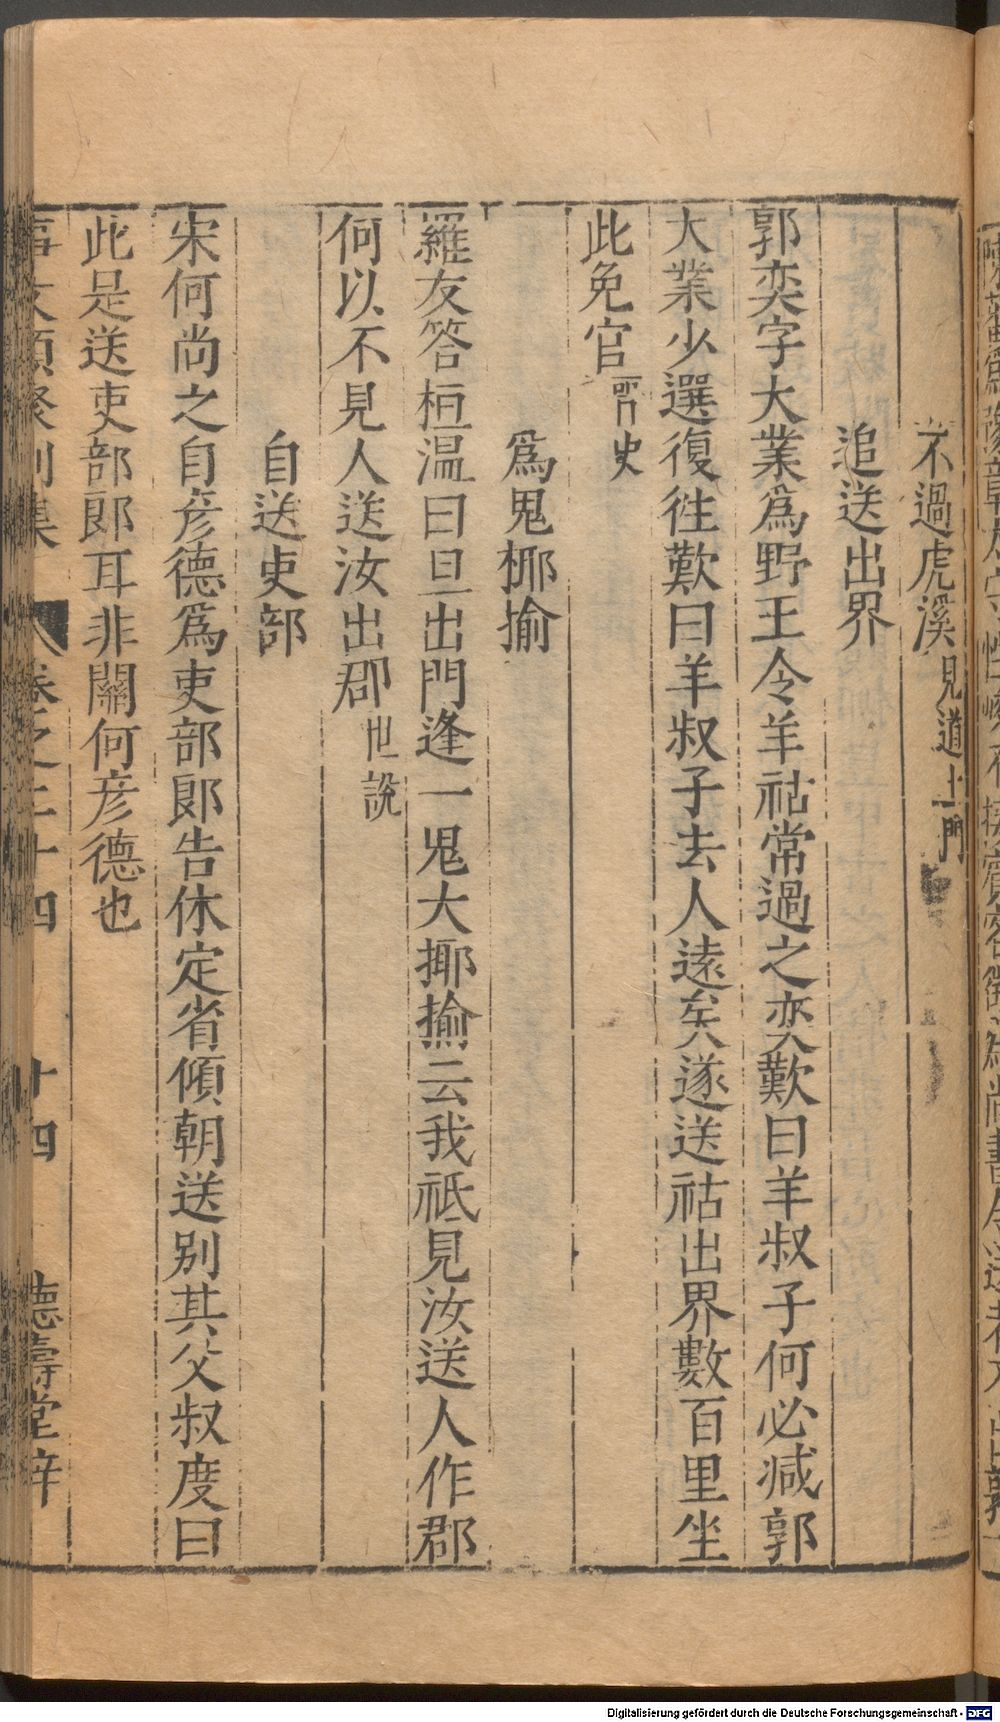 不過虎溪見道士門
追送出界
郭奕字大業爲野王令羊祜常過之奕歎曰羊叔子何必減郭
大業少選復徃歎曰羊叔子去人遠矣遂送祜出界數百里坐
此免官晋史
爲鬼揶揄
羅友答桓温曰旦出門逢一鬼大揶揄云我祇見汝送人作郡
何以不見人送汝出郡世說
自送吏部
宋何尚之自彦德爲吏部郎告休定省傾朝送别其父叔度曰
此是送吏部郎耳非關何彦德也
事文類聚别集 卷之二十四 十四 德壽堂梓
Digitalisierung gefördert durch die Deutsche Forschungsgemeinschaft - DFG